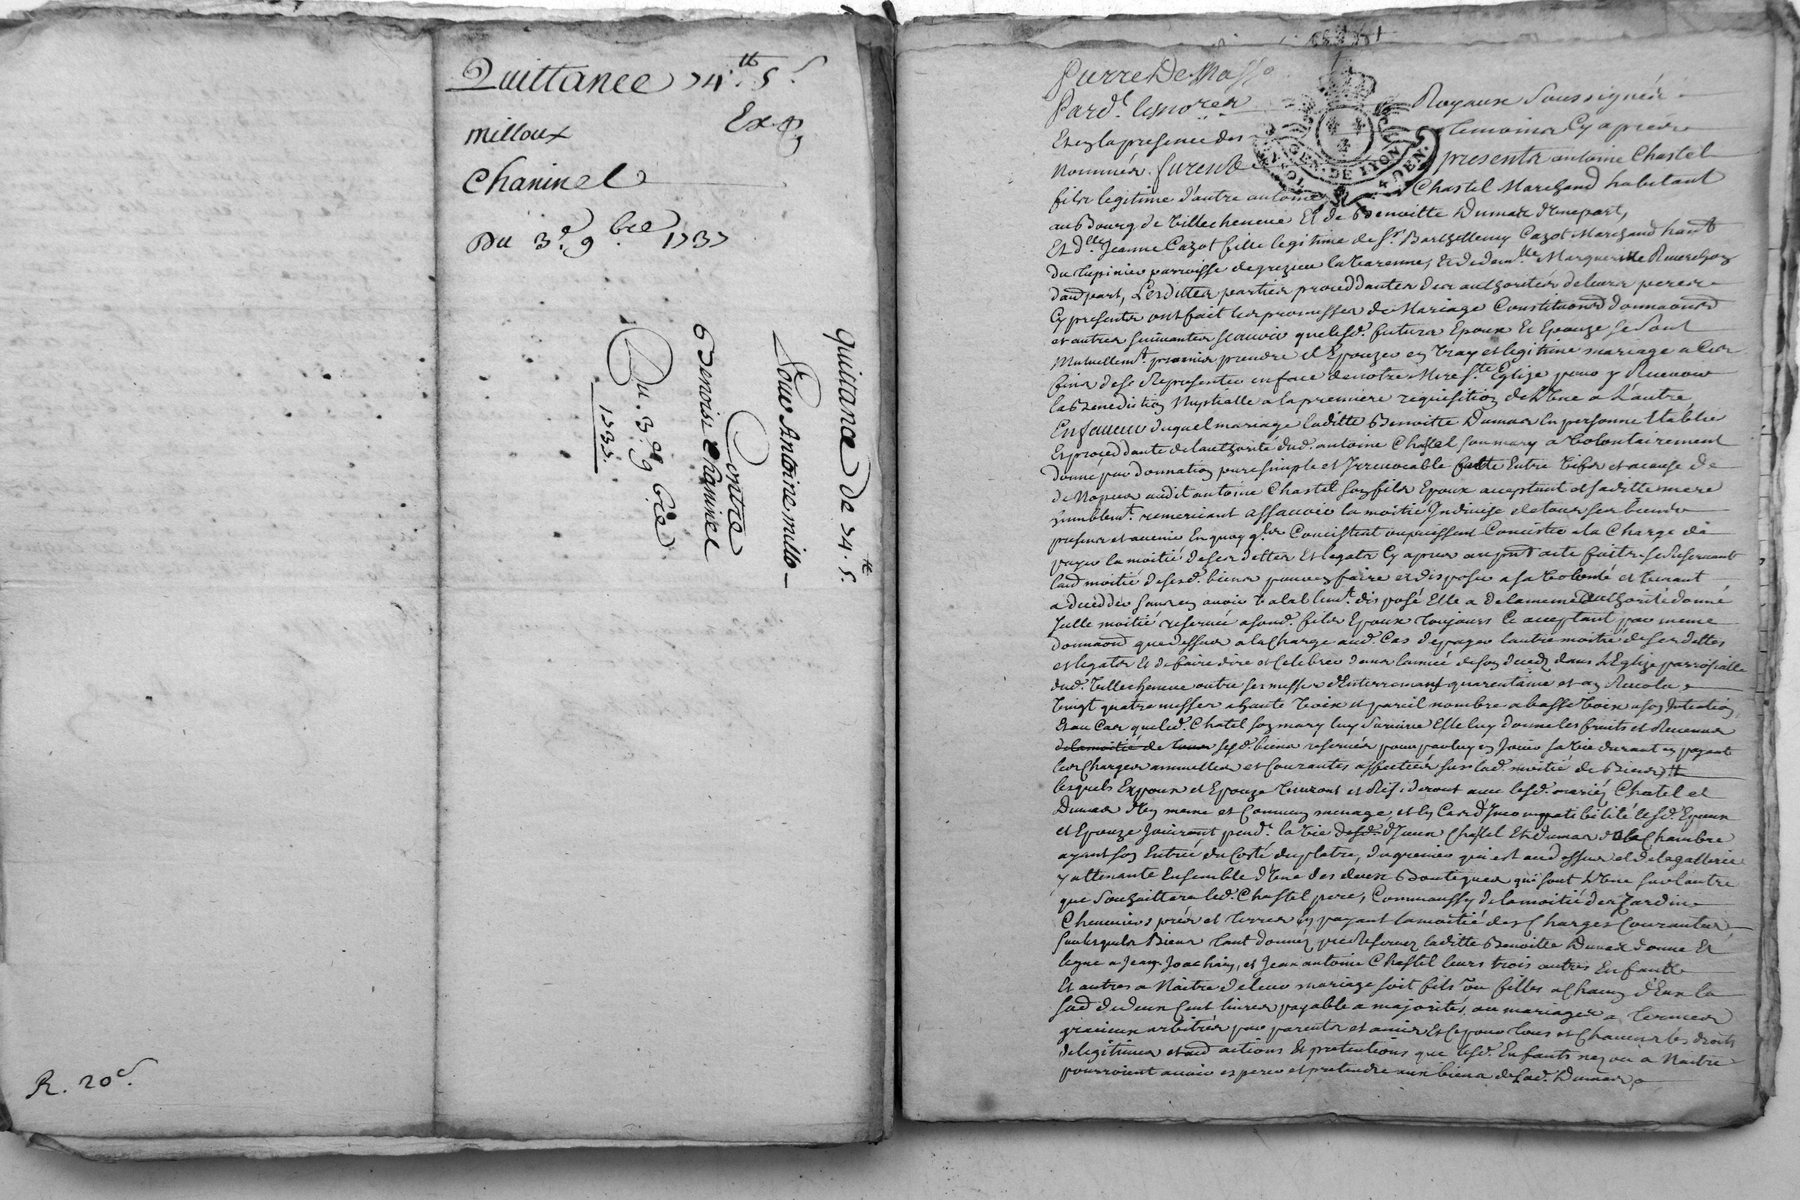 Quittance 74tt 5s
Ex
milloux
Chaninel
Du 3e 9bre 1737
quittance de 74tt 5s
Pour Antoine millo
Contre
Benoist Chaninel
Du 3e 9bre
1737
R. 20s.
Pierre De
Pard. les no.res Royaux Soussignés
Et en la presence des temoins Cy apres
Nommés furent presents antoine Chastel
fils legitime d'autre antoine Chastel Marchand habitant
au Bourg de Villecheneve Et de Benoitte Dumas d'une part,
Et Dlle Jeanne Cazot fille legitime de Sr. Barthellemy Cazot Marchand hant
du parroisse de grezieu la Varenne, Et de dem.lle Marguerite
d'aud part, Lesdittes parties proceddantes des authorités de leurs peres
Cy presents ont fait les promesses de Mariage Constitutions donnaons
et autres suivantes scavoir que lesd. futurs Epoux Et Epouze se sont
Mutuellemt. promis prendre et Epouzer en Vray et legitime mariage a Ces
fins de se Representer en face de notre Mere Ste. Eglise pour y Recevoir
la Benediction Nuptialle a la premiere requisition de l'une a L'autre
En faveur duquel mariage laditte Benoitte Dumas En personne Etablie
Et proceddante de l'authorité dud. antoine Chastel son mary a Volontairement
donné par donnation pure simple et Irrevocable faitte Entre Vifs et a cause de
de Nopces audit antoine Chastel son fils Epoux acceptant et saditte mere
humblemt. remerciant assavoir la moitié Indivise de tous ses biens
presens et avenir En quoy qls. Concistent ou puissent Concister a la Charge de
payer la moitié de ses dettes Et legats Cy apres au pnt acte faits se Reservant
laud moitié de sesd. biens pouvoir faire et disposer a sa Volonté et Venant
a decedder sans en avoir Valablemt. disposé Elle a de la meme authorité donné
Icelle moitié reservée a sond. fils Epoux toujours Ce acceptant par meme
donnaon que dessus a la Charge aud. Cas de payer l'autre moitié de ses dettes
et legats Et de faire dire et Celebrer dans l'année de son deceds dans L'Eglize parroissialle
dud. Villecheneve outre ses messes d'Enterremant quarentaine et
Vingt quatre messes a haute Voix et pareil nombre a basse Voix a son Intention
Et au Cas que led. Chatel son mary luy survive Elle luy donne les fruits et Revenus
de la moitié de tous sesd. biens reservés pour par luy en Jouir sa Vie durant en payant
les Charges annuelles et Courantes affectées sur lad. moitié de Biens
lesquels Expoux et Epouze Vivront et Resideront avec lesd. mariés Chatel et
Dumas d'un meme et Commun menage, et En Cas d'Incompatibilité lesd. Epoux
et Epouze Jouiront pend. la Vie desd. Chastel Et Dumas de la Chambre
ayant son Entrée du Costé du platre, du grenier qui est au dessus et de la gallerie
y attenante Ensemble d'une des deux Boutiques qui sont l'une sur l'autre
que souhaittera led. Chastel pere, Comme aussy de la moitié des Jardin
Chenevier, prés et terres En payant la moitié des Charges Courantes,
Sur lesquels Biens tant donnés que Reservez laditte Benoitte Dumas donne Et
legue a Jean, Joachin, et Jean antoine Chastel leurs trois autres Enfants
Et autres a Naitre de leur mariage soit fils ou filles a Chacun d'Eux la
de deux Cent livres payable a majorités, ou mariages a termes
gracieux arbitrés par parents et amis Et Ce pour tous et Chacuns les droits
de legitimes et aud actions Et pretentions que lesd. Enfants nez ou a Naitre
pourroient avoir esperer et pretendre aux biens de lad. Dumas
GEN. DE LYON
4 DEN.